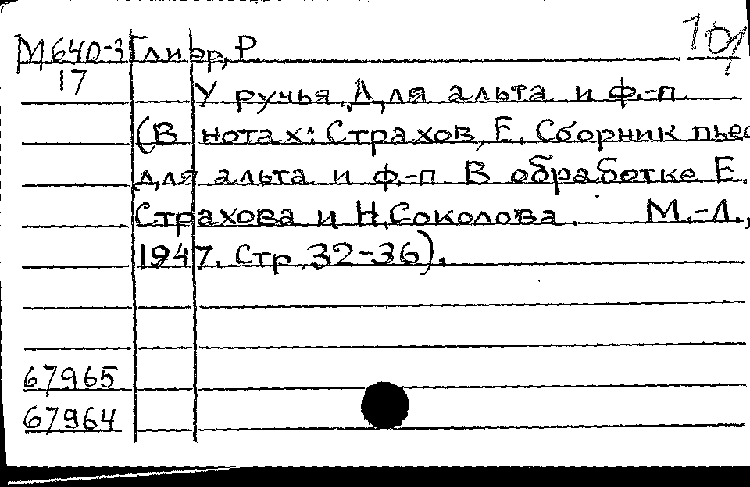 М640-3 Глиэр, Р. 101
17
У ручья. Для альта и ф.-п.
(В нотах: Страхов, Е. Сборник пьес
для альта и ф.-п. В обработке Е.
Страхова и Н. Соколова. М.-Л.,
1947. Стр. 32-36).
67965
67964